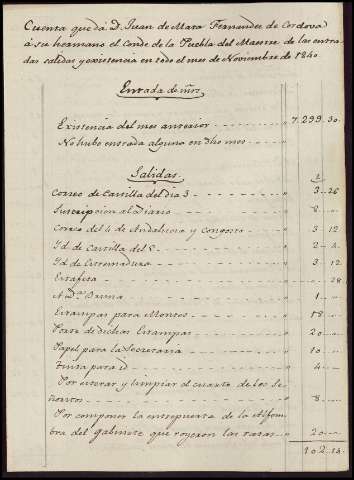 Cuenta que dá D. Juan de Mata Fernandez de Cordova
á su hermano el Conde de la Puebla del Maestre de las entra-
das salidas y existencia en todo el mes de Noviembre de 1840
Entrada de mrs.
Existencia del mes anterior 7.299.30.
No hubo entrada alguna en dho mes
Salidas.
Correo de Castilla del dia 3 3..26
Suscripcion al Diario 8
Correo del 4 de Andalucia y congreso 3..12
Yd de Castilla del 8
Yd de Estremadura 3..12
Estafeta 28
1
Estampas para Montes 18
Porte de dichas Estampas 20
Papel para la Secretaria 10
Tinta para id 4
Por esterar y limpiar el cuarto de los Se-
ñoritos 8
Por componer la entrepuerta de la Alfom-
bra del gabinete que royeron las ratas 20
102.